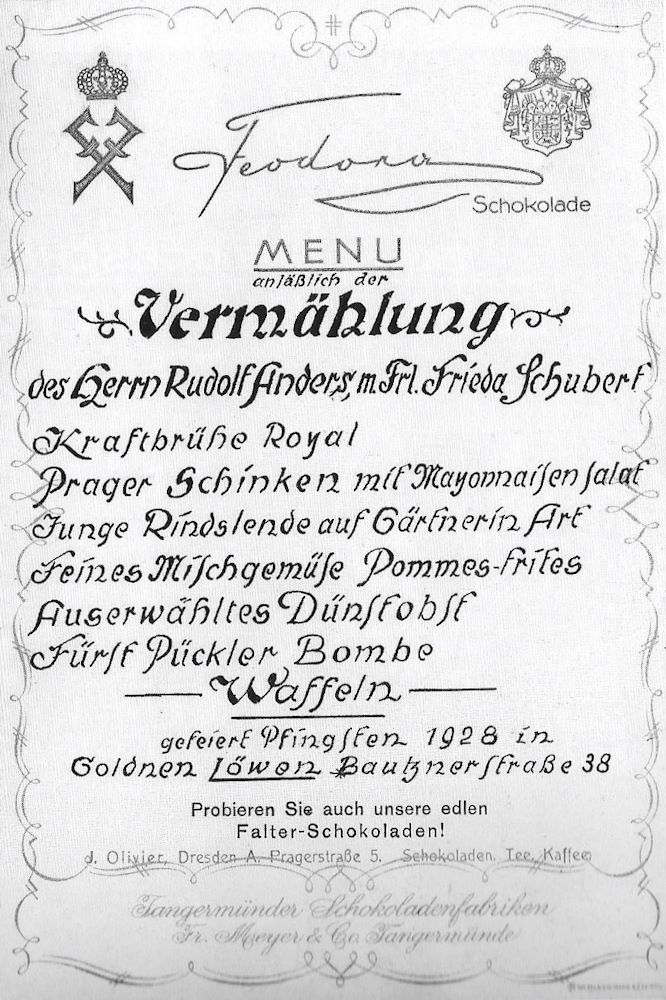 Feodora
Schokolade
MENU
anläßlich der
Vermählung
des Herrn Rudolf Anders, m. Frl. Frieda Schubert
Kraftbrühe Royal
Prager Schinken mit Mayonnaisensalat
Junge Rindslende auf Gärtnerin Art
Feines Mischgemüse Pommes-frites
Auserwähltes Dünstobst
Fürst Pückler Bombe
Waffeln
gefeiert Pfingsten 1928 in
Goldnen Löwen Bautznerstraße 38
Probieren Sie auch unsere edlen
Falter-Schokoladen!
J. Olivier, Dresden A. Pragerstraße 5. Schokoladen, Tee, Kaffee
Tangermünder Schokoladenfabriken
Fr. Meyer & Co. Tangermünde